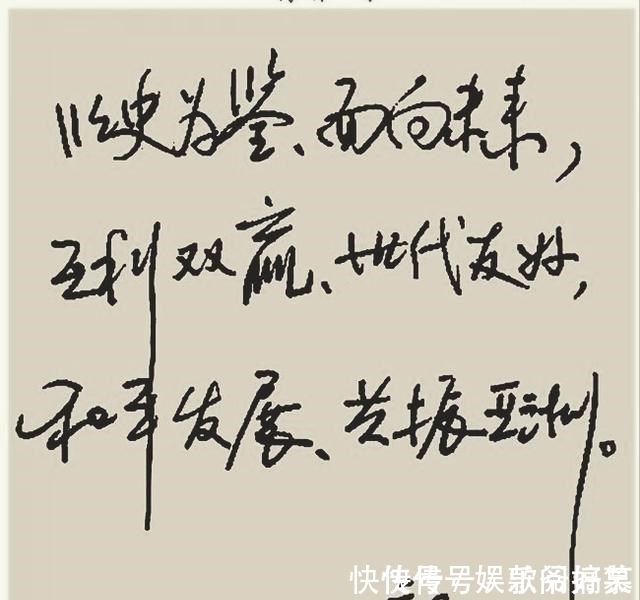 以史为鉴、面向未来，
互利双赢、世代友好，
和平发展、共振亚洲。
快传号